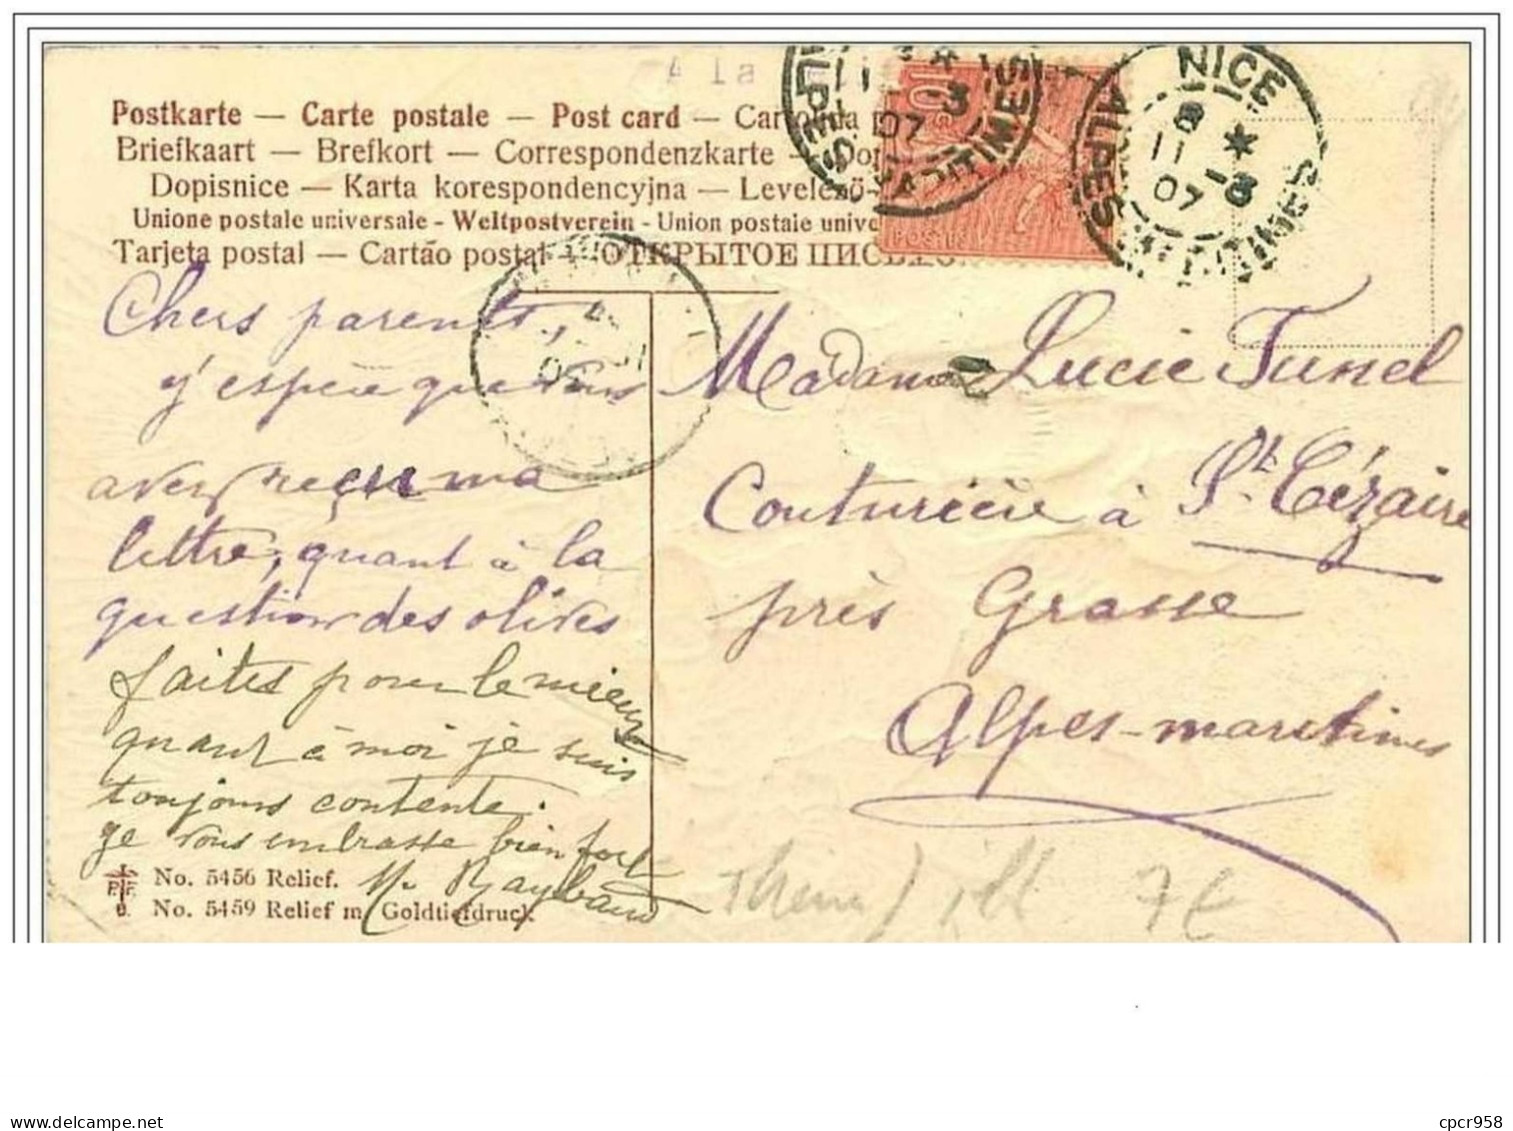 A la
Postkarte — Carte postale — Post card — Car
Briefkaart — Brefkort — Correspondenzkarte —
Dopisnice — Karta korespondencyjna — Levelező-
Unione postale universale - Weltpostverein - Union postale unive
Tarjeta postal — Cartão postal — ОТКРЫТОЕ ПИСЬМО
10
POSTES
ALPES MARITIMES
11 -3
07
NICE
8 *
11 -3
07
ALPES MARITIMES
Chers parents,
j'espère que vous
avez reçu ma
lettre, quant à la
question des olives
faites pour le mieux
quant à moi je suis
toujours contente.
Je vous embrasse bien fort
M. Raybaud
Madame Lucie Funel
Couturière à St Cézaire
près Grasse
Alpes-maritimes
No. 5456 Relief.
No. 5459 Relief m. Goldtiefdruck.
7€
cpcr958